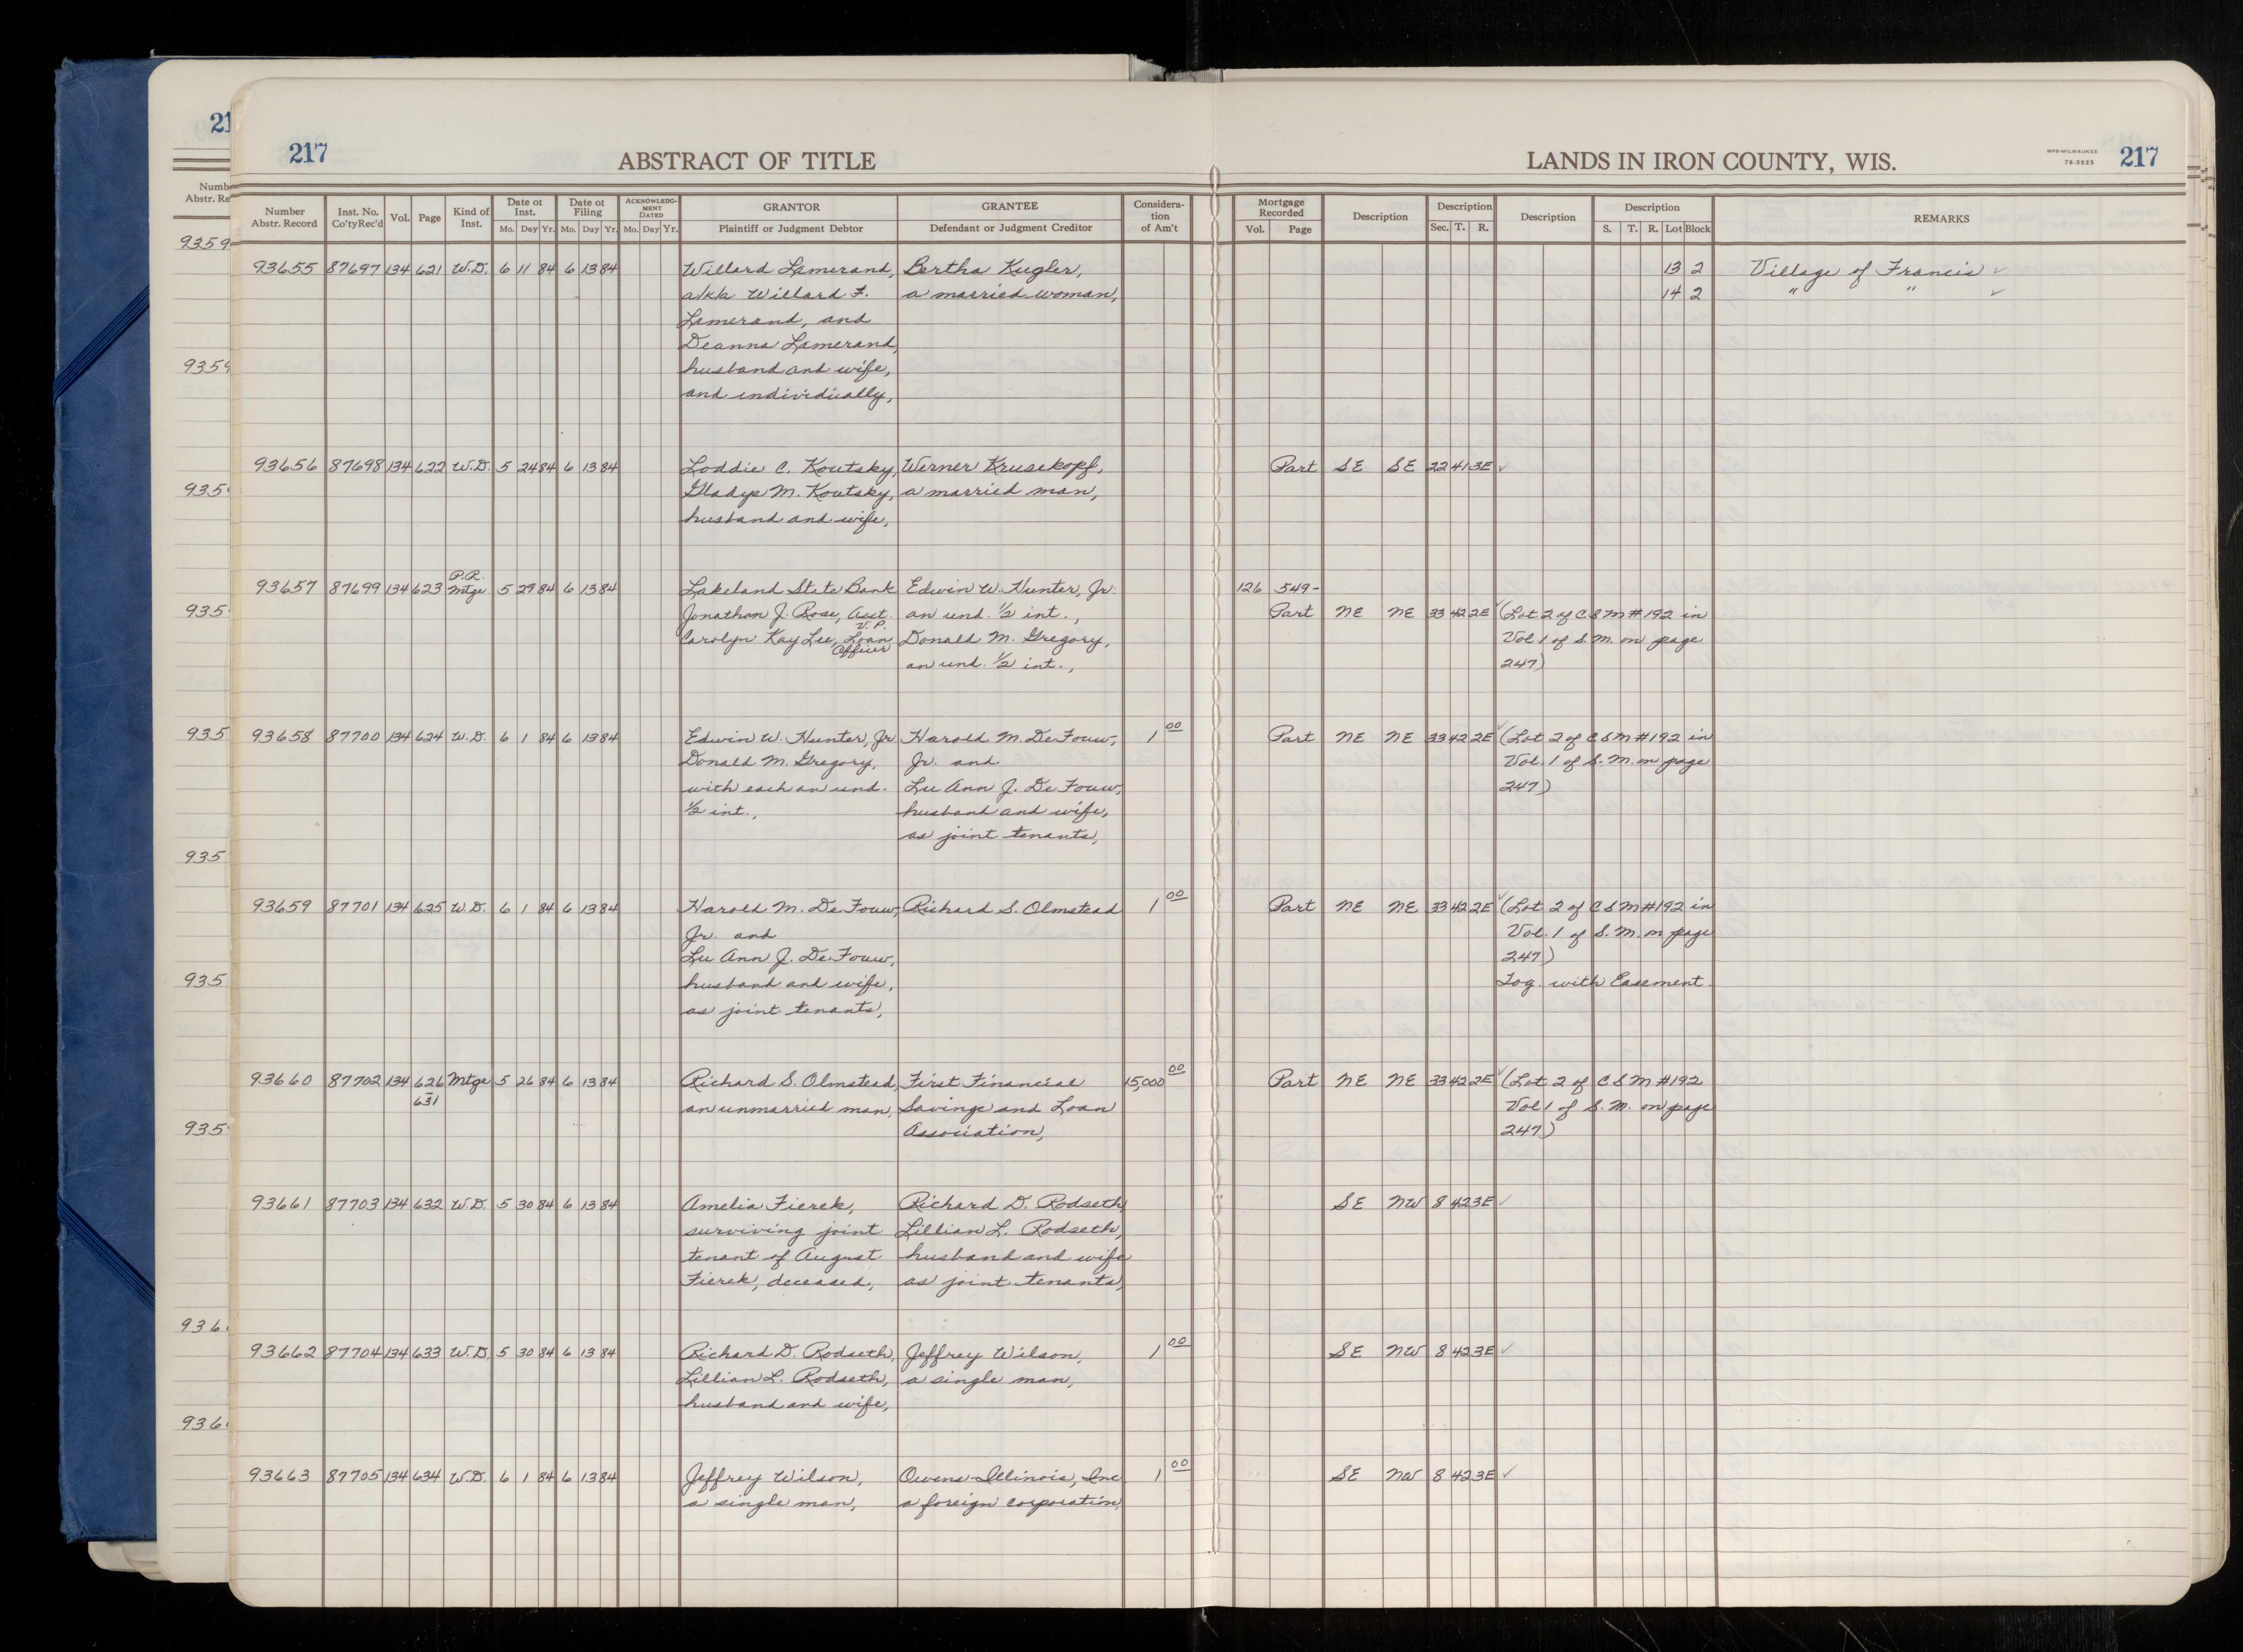 217
ABSTRACT OF TITLE
LANDS IN IRON COUNTY, WIS.
WPB-MILWAUKEE
78-3525
217
Number Abstr. Record | Inst. No. Co'ty Rec'd | Vol. | Page | Kind of Inst. | Date of Inst. Mo. Day Yr. | Date of Filing Mo. Day Yr. | ACKNOWLEDGMENT DATED Mo. Day Yr. | GRANTOR Plaintiff or Judgment Debtor | GRANTEE Defendant or Judgment Creditor | Consideration of Am't | Mortgage Recorded Vol. Page | Description | Description Sec. T. R. | Description | Description S. T. R. Lot Block | REMARKS
93655 87697 134 621 W.D. 6 11 84 6 13 84 Willard Lamerand, Bertha Kugler, 13 2 Village of Francis ✓
a/k/a Willard F. a married woman, 14 2 " " ✓
Lamerand, and
Deanna Lamerand,
husband and wife,
and individually,
93656 87698 134 622 W.D. 5 24 84 6 13 84 Loddie C. Koutsky, Werner Krusekopf, Part SE SE 22 41 3E ✓
Gladys M. Koutsky, a married man,
husband and wife,
P.R.
93657 87699 134 623 Mtge 5 29 84 6 13 84 Lakeland State Bank Edwin W. Hunter, Jr. 126 549-
Jonathan J. Rose, Asst. V.P. an und. ½ int., Part NE NE 33 42 2E ✓ (Lot 2 of CSM #192 in
Carolyn Kay Lee, Loan Officer Donald M. Gregory, Vol. 1 of S.M. on page
an und. ½ int., 247)
93658 87700 134 624 W.D. 6 1 84 6 13 84 Edwin W. Hunter, Jr Harold M. DeFouw, 1 00 Part NE NE 33 42 2E ✓ (Lot 2 of CSM #192 in
Donald M. Gregory, Jr. and Vol. 1 of S.M. on page
with each an und. Lu Ann J. DeFouw, 247)
½ int., husband and wife,
as joint tenants,
93659 87701 134 625 W.D. 6 1 84 6 13 84 Harold M. DeFouw, Richard S. Olmstead 1 00 Part NE NE 33 42 2E ✓ (Lot 2 of CSM #192 in
Jr. and Vol. 1 of S.M. on page
Lu Ann J. DeFouw, 247)
husband and wife, Tog. with Easement.
as joint tenants,
93660 87702 134 626 Mtge 5 26 84 6 13 84 Richard S. Olmstead, First Financial 15,000 00 Part NE NE 33 42 2E ✓ (Lot 2 of CSM #192
- 631 an unmarried man, Savings and Loan Vol 1 of S.M. on page
Association, 247)
93661 87703 134 632 W.D. 5 30 84 6 13 84 Amelia Fierek, Richard D. Rodseth, SE NW 8 42 3E ✓
surviving joint Lillian L. Rodseth,
tenant of August husband and wife
Fierek, deceased, as joint tenants,
93662 87704 134 633 W.D. 5 30 84 6 13 84 Richard D. Rodseth, Jeffrey Wilson, 1 00 SE NW 8 42 3E ✓
Lillian L. Rodseth, a single man,
husband and wife,
93663 87705 134 634 W.D. 6 1 84 6 13 84 Jeffrey Wilson, Owens-Illinois, Inc 1 00 SE NW 8 42 3E ✓
a single man, a foreign corporation,